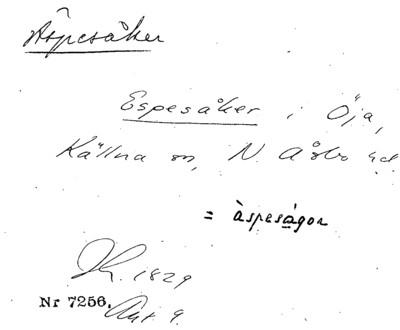 Äspesåker
Espesåker i Öja,
Källna sn, N. Åsbo hd
= àspeságor
Lh. 1829
Nr 7256. Akt 9.